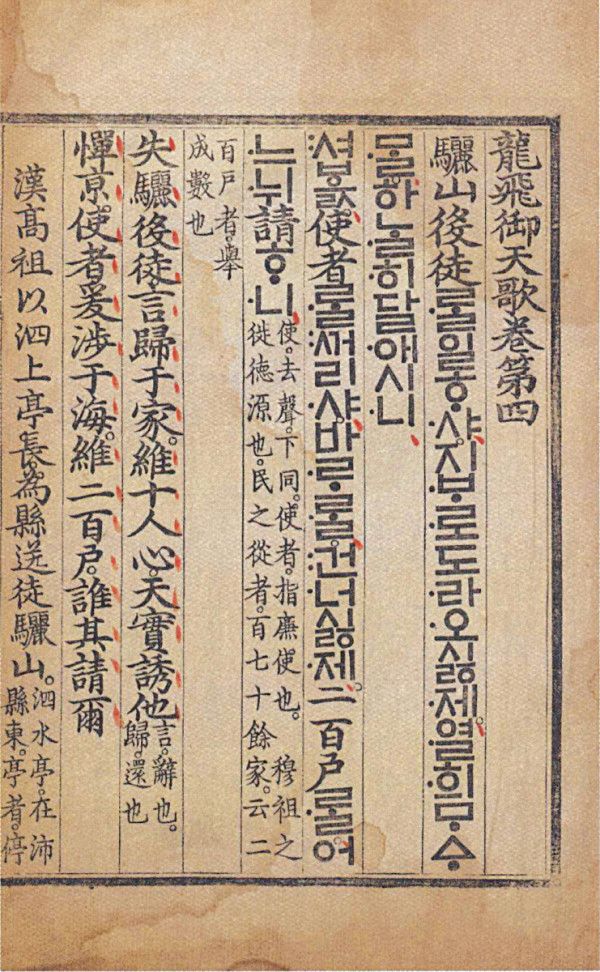 龍飛御天歌卷第四
驪山役徒ᄅᆞᆯ일ᄒᆞ샤、지ᄇᆞ로도라오싫제。열희ᄆᆞᅀᆞ
ᄆᆞᆯ하ᄂᆞᆯ히달애시니、
셔ᄫᅳᆳ使者ᄅᆞᆯᄭᅥ리샤、바ᄅᆞᄅᆞᆯ건너싫제。二百戶ᄅᆞᆯ어
느뉘請ᄒᆞ니、
使。去聲。下同。使者。指廉使也。 穆祖之
徙德源也。民之從者。百七十餘家。云二
百戶者。擧
成數也
失驪役徒。言歸于家。維十人心。天實誘他
言。辭也。
歸。還也
憚京使者。爰涉于海。維二百戶。誰其請爾
漢高祖以泗上亭長。爲縣送徒驪山。
泗水亭。在沛
縣東。亭者。停